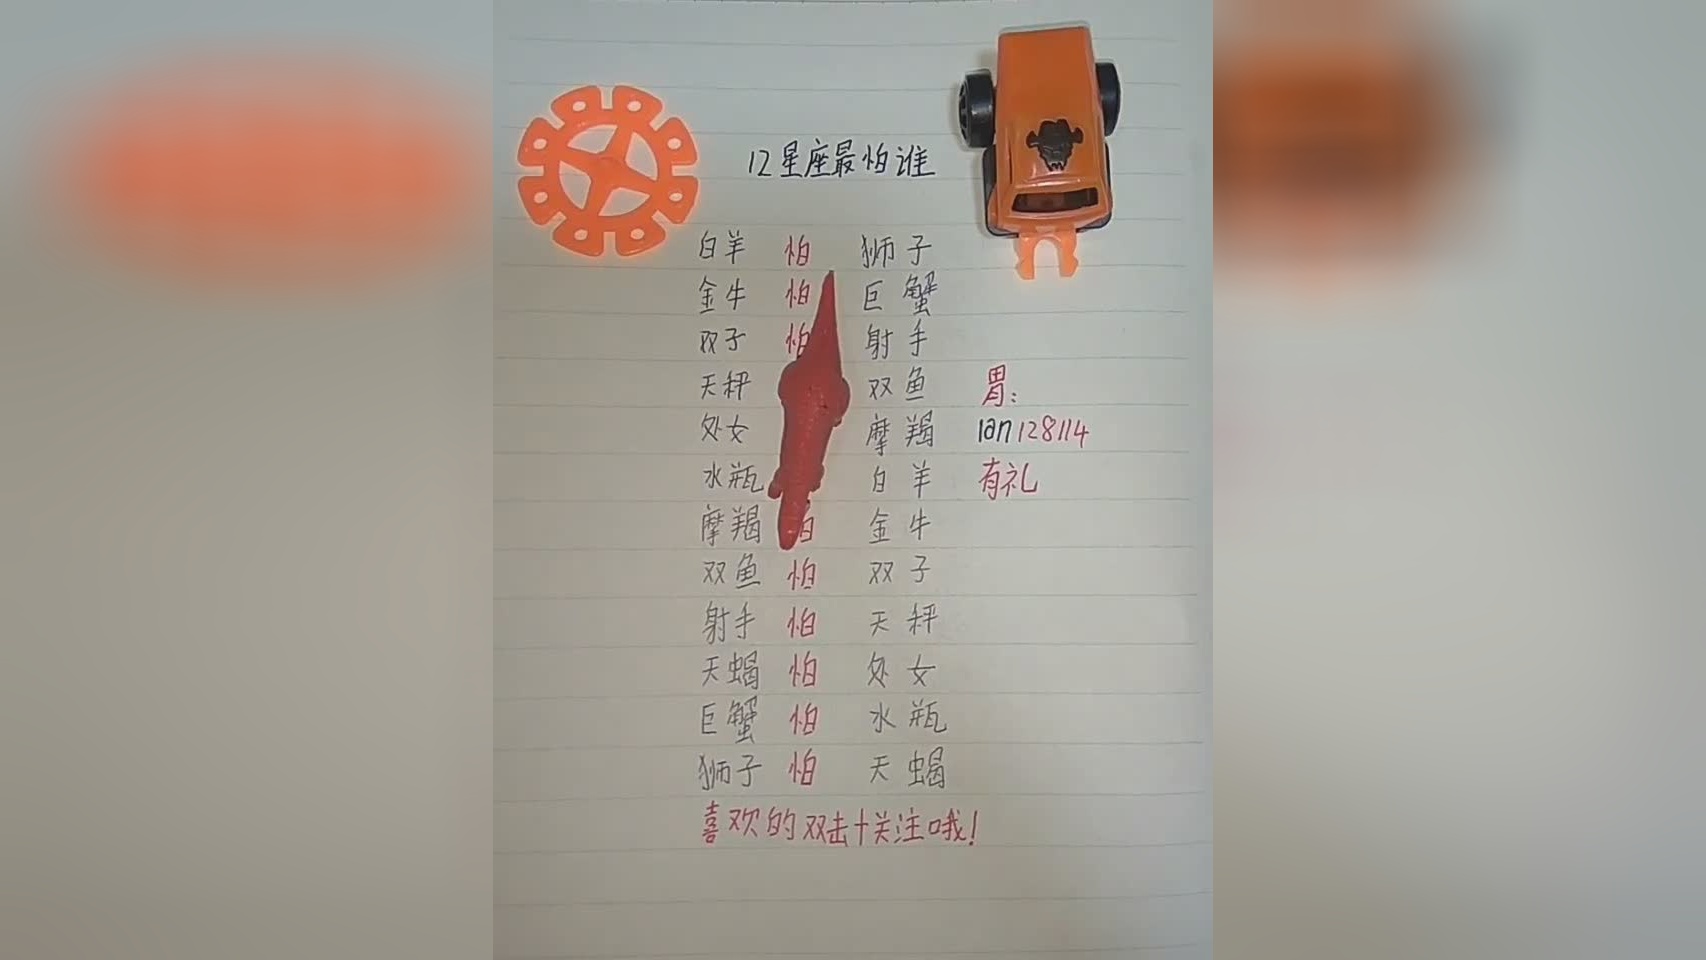 12星座最怕谁
白羊 怕 狮子
金牛 怕 巨蟹
双子 怕 射手
天秤 双鱼
处女 摩羯
水瓶 白羊
摩羯 金牛
双鱼 怕 双子
射手 怕 天秤
天蝎 怕 处女
巨蟹 怕 水瓶
狮子 怕 天蝎
胃:
lan128114
有礼
喜欢的双击+关注哦!